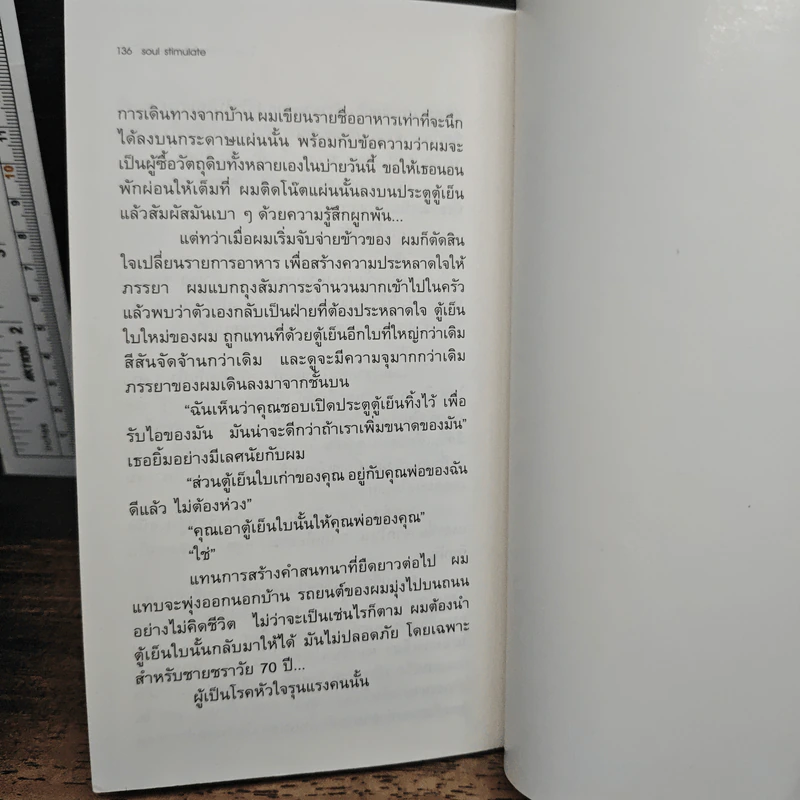 136 soul stimulate
การเดินทางจากบ้าน ผมเขียนรายชื่ออาหารเท่าที่จะนึก
ได้ลงบนกระดาษแผ่นนั้น พร้อมกับข้อความว่าผมจะ
เป็นผู้ซื้อวัตถุดิบทั้งหลายเองในบ่ายวันนี้ ขอให้เธอนอน
พักผ่อนให้เต็มที่ ผมติดโน๊ตแผ่นนั้นลงบนประตูตู้เย็น
แล้วสัมผัสมันเบา ๆ ด้วยความรู้สึกผูกพัน...
แต่ทว่าเมื่อผมเริ่มจับจ่ายข้าวของ ผมก็ตัดสิน
ใจเปลี่ยนรายการอาหาร เพื่อสร้างความประหลาดใจให้
ภรรยา ผมแบกถุงสัมภาระจำนวนมากเข้าไปในครัว
แล้วพบว่าตัวเองกลับเป็นฝ่ายที่ต้องประหลาดใจ ตู้เย็น
ใบใหม่ของผม ถูกแทนที่ด้วยตู้เย็นอีกใบที่ใหญ่กว่าเดิม
สีสันจัดจ้านกว่าเดิม และดูจะมีความจุมากกว่าเดิม
ภรรยาของผมเดินลงมาจากชั้นบน
“ฉันเห็นว่าคุณชอบเปิดประตูตู้เย็นทิ้งไว้ เพื่อ
รับไอของมัน มันน่าจะดีกว่าถ้าเราเพิ่มขนาดของมัน”
เธอยิ้มอย่างมีเลศนัยกับผม
“ส่วนตู้เย็นใบเก่าของคุณ อยู่กับคุณพ่อของฉัน
ดีแล้ว ไม่ต้องห่วง”
“คุณเอาตู้เย็นใบนั้นให้คุณพ่อของคุณ”
“ใช่”
แทนการสร้างคำสนทนาที่ยืดยาวต่อไป ผม
แทบจะพุ่งออกนอกบ้าน รถยนต์ของผมมุ่งไปบนถนน
อย่างไม่คิดชีวิต ไม่ว่าจะเป็นเช่นไรก็ตาม ผมต้องนำ
ตู้เย็นใบนั้นกลับมาให้ได้ มันไม่ปลอดภัย โดยเฉพาะ
สำหรับชายชราวัย 70 ปี...
ผู้เป็นโรคหัวใจรุนแรงคนนั้น